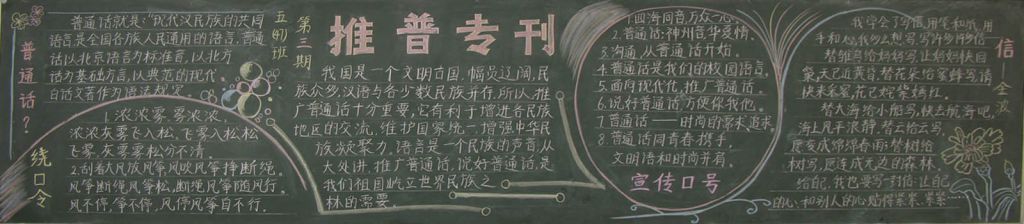 普通话？
普通话就是：“现代汉民族的共同
语言是全国各族人民通用的语言，普通
话以北京语音为标准音，以北方
话为基础方言，以典范的现代
白话文著作为语法规定
绕口令
1.浓浓雾，雾浓浓，
浓浓灰雾飞入松，飞雾入松松
飞雾，灰雾雾松分不清。
2.刮着大风放风筝，风吹风筝挣断绳，
风筝断绳风筝松，断绳风筝随风行，
风不停，筝不停，风停风筝自不行。
五（4）班
第三期
推普专刊
我国是一个文明古国，幅员辽阔，民
族众多，汉语与各少数民族并存，所以，推
广普通话十分重要，它有利于增进各民族
地区的交流，维护国家统一，增强中华民
族凝聚力，语言是一个民族的声音，从
大处讲，推广普通话，说好普通话，是
我们祖国屹立世界民族之
林的需要。
1.四海同音，万众一心。
2.普通话：神州音，华夏情。
3.沟通，从普通话开始。
4.普通话是我们的校园语言。
5.面向现代化，推广普通话。
6.说好普通话，方便你我他。
7.普通话——时尚的需求、追求。
8.普通话同青春携手，
文明语和时尚并肩。
宣传口号
信——金波
我学会了写信，用笔和纸，用
手和心，我多么想写，写许多许多信
替雏鸟给妈妈写，让妈妈快回
窠，天已近黄昏，替花朵给蜜蜂写，请
快来采蜜，花已绽笑脸。
替大海给小船写，快去航海吧，
海上风平浪静，替云给云写，
愿变成绵绵春雨，替树给
树写，愿连成无边的森林。
给自己，我也要写一封信，让自己
的心，和别人的心贴得紧紧、紧紧……